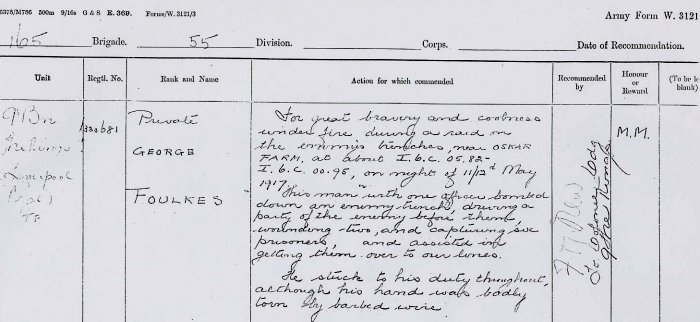 5375/M786 500m 9/16s G & S E. 369. Forms/W. 3121/3
Army Form W. 3121
165 Brigade. 55 Division. Corps. Date of Recommendation.
Unit
Regtl. No.
Rank and Name
Action for which commended
Recommended by
Honour or Reward
(To be le
blank)
9 Bn
Liverpool
320681
Private
GEORGE
FOULKES
For great bravery and coolness
under fire during a raid on
the enemy's trenches, near OSKAR
FARM, at about I.6.C. 05.82-
I.6.C. 00.95, on night of 11/12th May
1917.
This man with one officer bombed
down an enemy trench driving a
party of the enemy before them,
wounding two, and capturing six
prisoners, and assisted in
getting them over to our lines.
He stuck to his duty throughout,
although his hand was badly
torn by barbed wire
M.M.